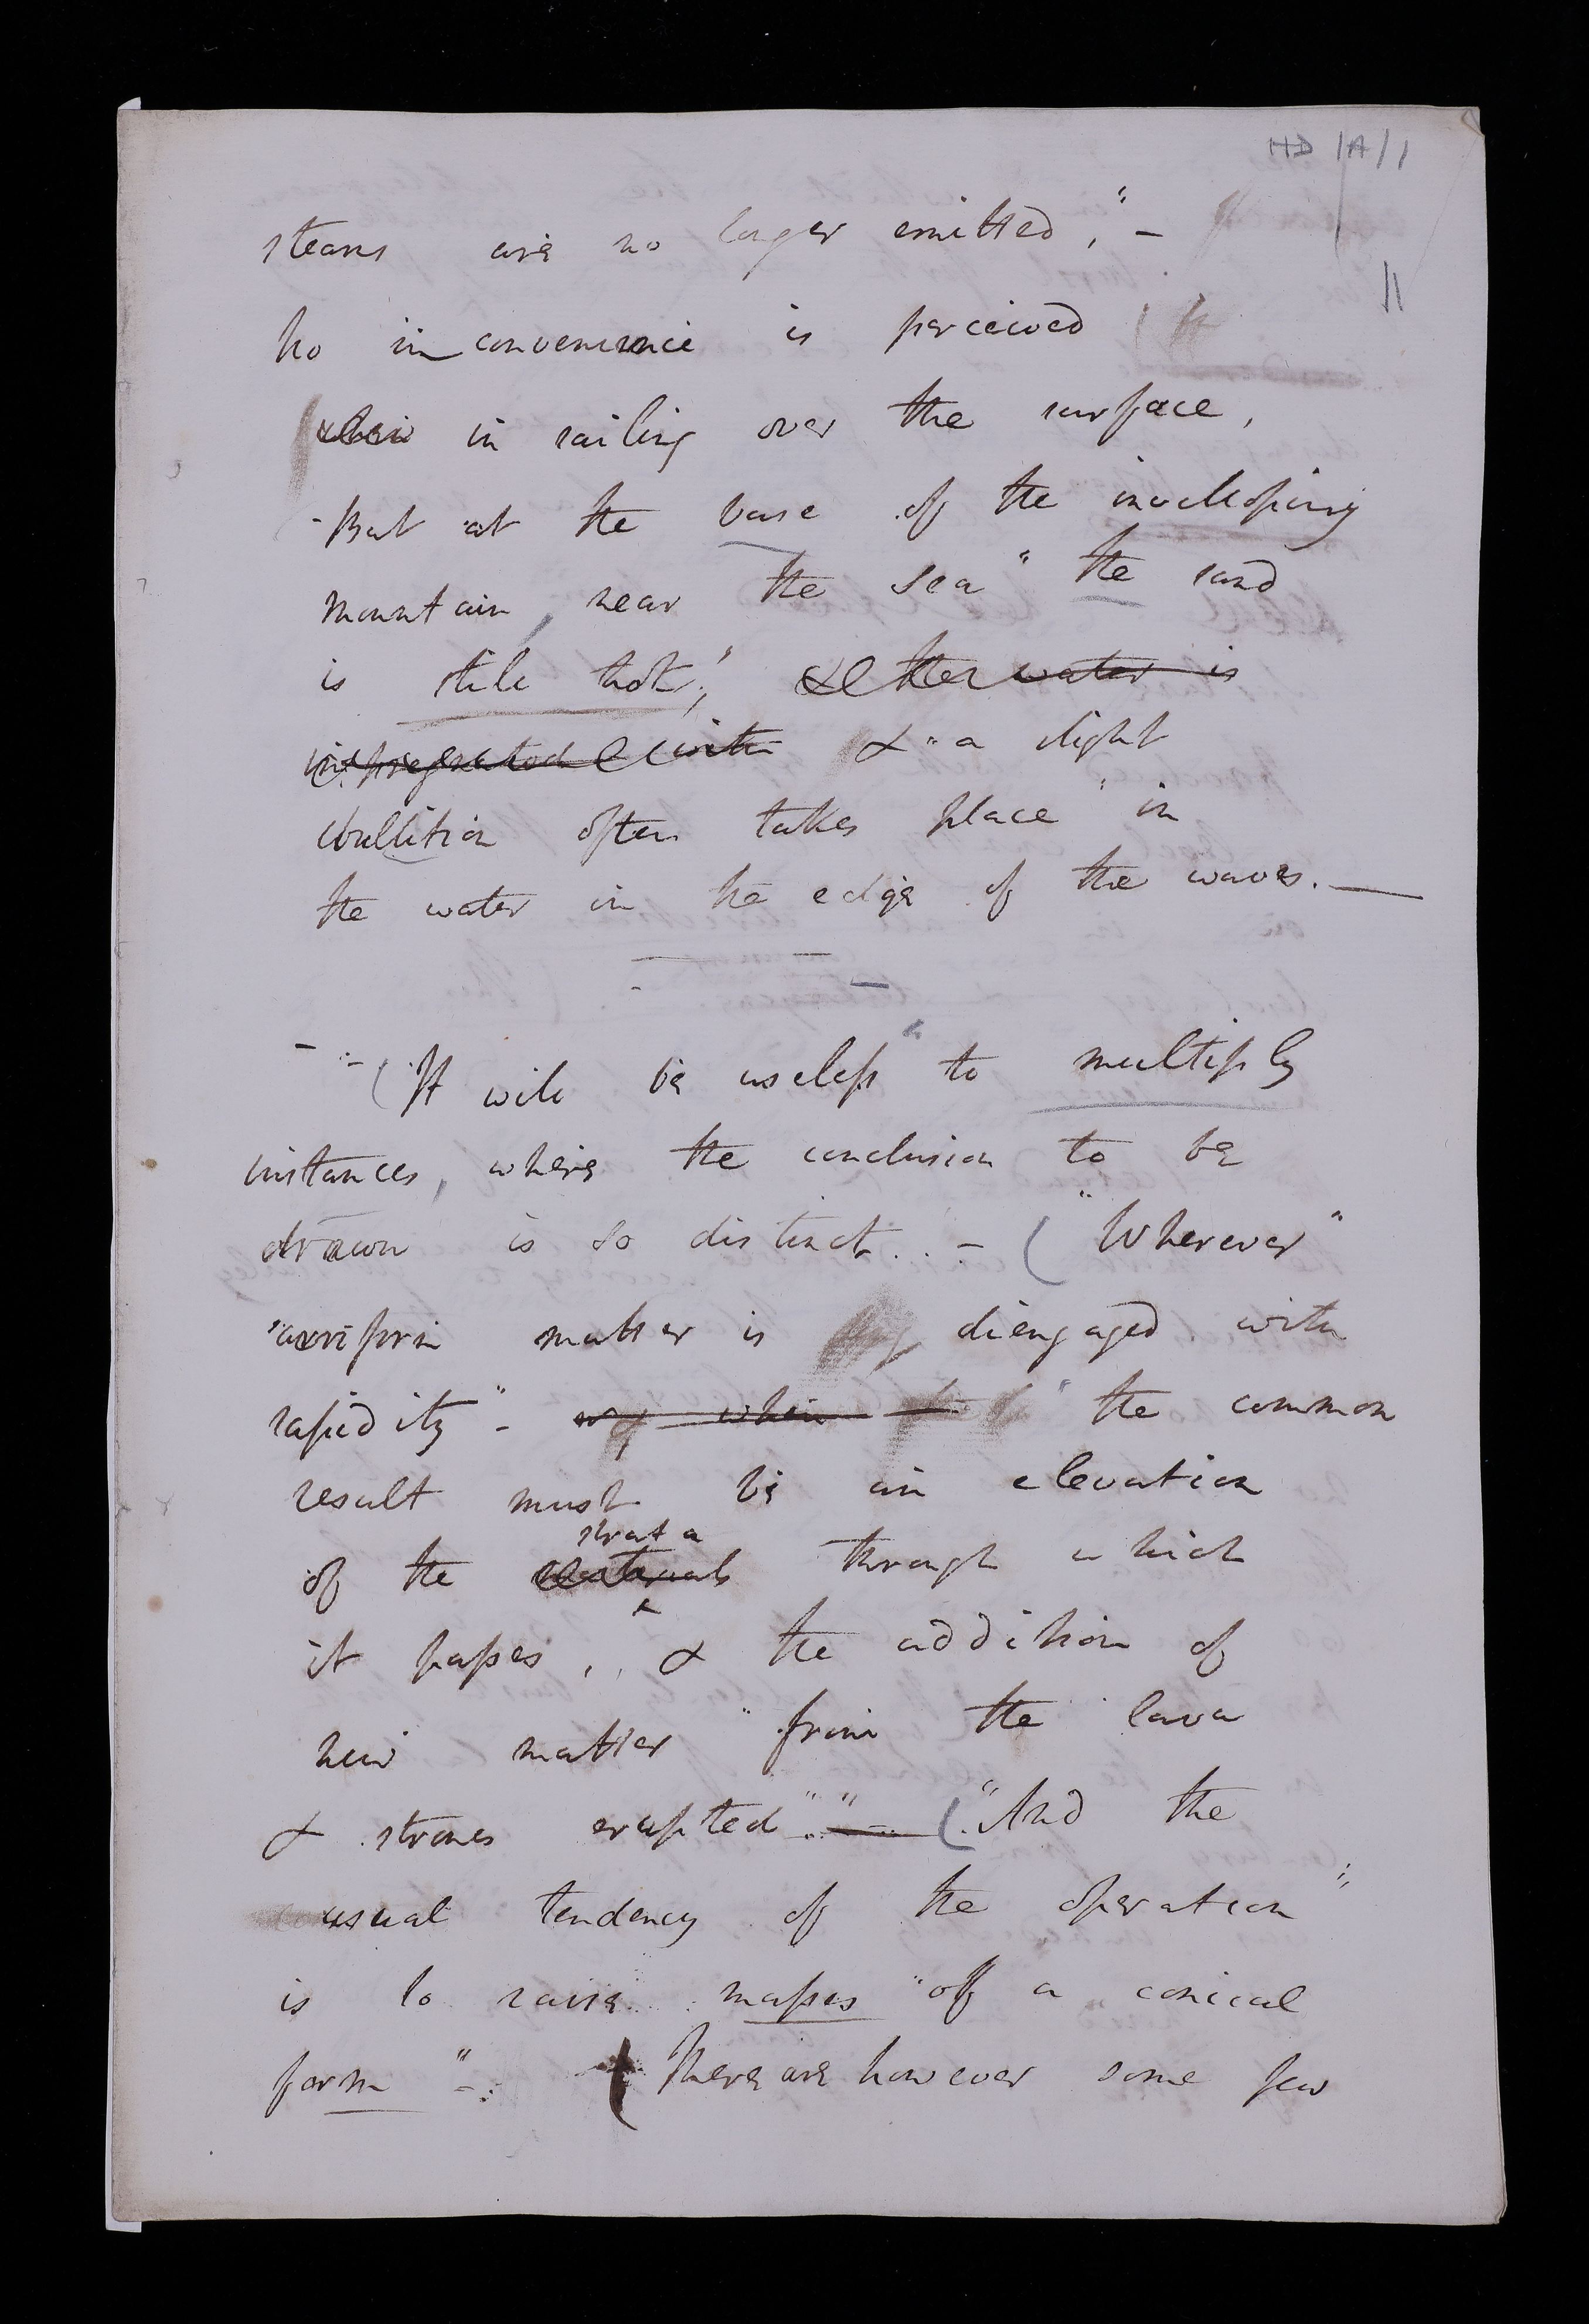 HD /A/1
11
steams are no longer emitted," –
no inconvenience is perceived
in sailing over the surface,
- But at the base of the invelloping
mountain, near the sea "the sand
is still hot", & the water is
impregnated with & "a slight
ebullition often takes place" in
the water in the edge of the waves. —
– (It will be useless" to multiply
instances, where the conclusion to be
drawn is so distinct. – ("Wherever"
"aeriform matter is diengaged with
rapidity" - or when "the common
result must be an elevation
strata
of the materials through which
it passes, & the addition of
new matter" from the lava
& stones erupted" – ("And the
usual tendency of the operation"
is to raise masses "of a conical
form" –: (There are however some few